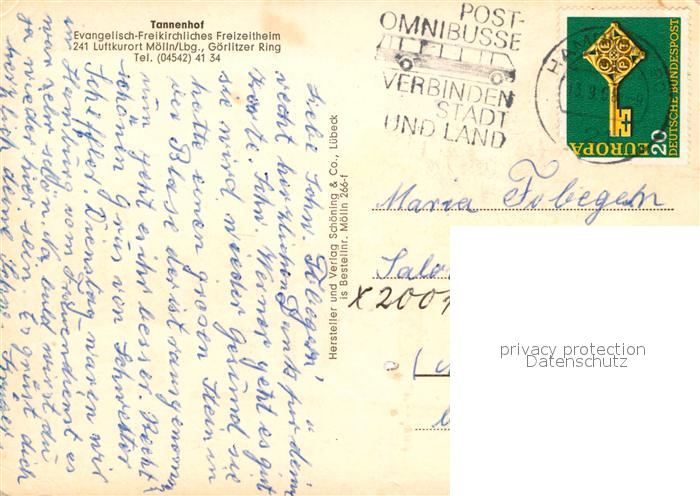 Tannenhof
Evangelisch-Freikirchliches Freizeitheim
241 Luftkurort Mölln/Lbg., Görlitzer Ring
Tel. (04542) 41 34
POST-
OMNIBUSSE
VERBINDEN
STADT
UND LAND
HAM
EUROPA
20
DEUTSCHE BUNDESPOST
CEPT
Hersteller und Verlag Schöning & Co., Lübeck
is Bestellnr. Mölln 266-f
Liebe Schw. Fobegem,
recht herzlichen Dank für deine
Karte. Schw. Werner geht es gut
sie wird wieder gesund sie
hatte einen grosen Stein in
der Blase der ist rausgenomm
nun geht es ihr besser. Recht
schönen Grus von Schwester
Schäffler. Dienstag waren wir
in Hamburg vom Frauendienst es
war sehr schön na bald wirst du
ja wieder hier sein Es grüst dich
herzlich deine Schw.
Maria Fobegem
Salo
X2001
privacy protection
Datenschutz